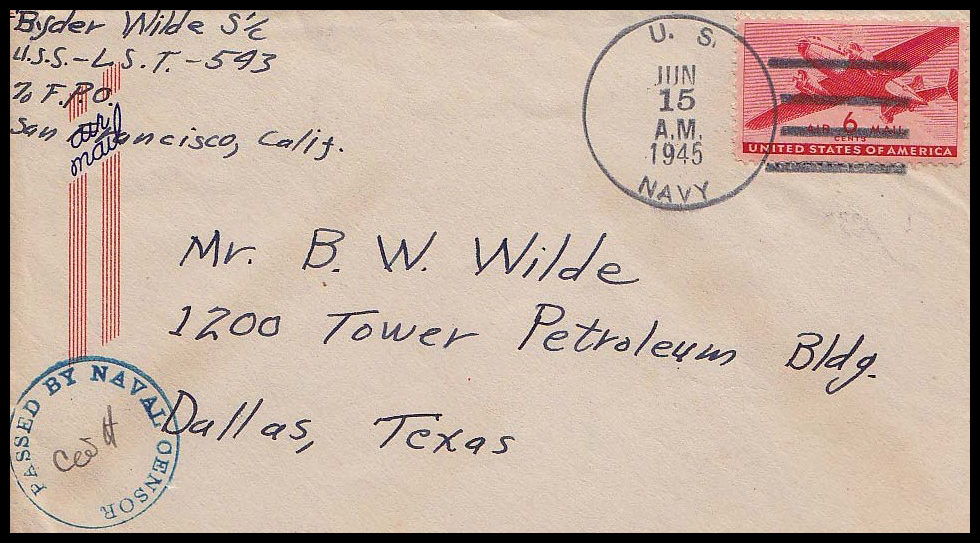 Byder Wilde S1/c
U.S.S.-L.S.T.-593
c/o F.P.O.
San Francisco, Calif.
air
mail
U. S.
JUN
15
A.M.
1945
NAVY
AIR 6 MAIL
CENTS
UNITED STATES OF AMERICA
Mr. B. W. Wilde
1200 Tower Petroleum Bldg.
Dallas, Texas
PASSED BY NAVAL CENSOR